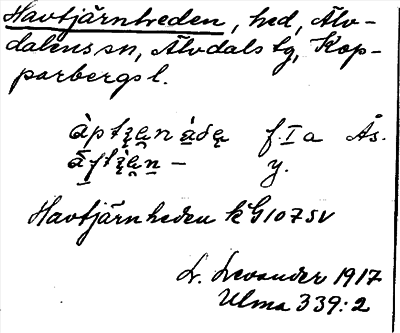 Havtjärnheden, hed, Älv-
dalens sn, Älvdals tg, Kop-
parbergs l.
f. I a Ås.
y.
Havtjärnheden kG107SV
L. Levander 1917
Ulma 339:2